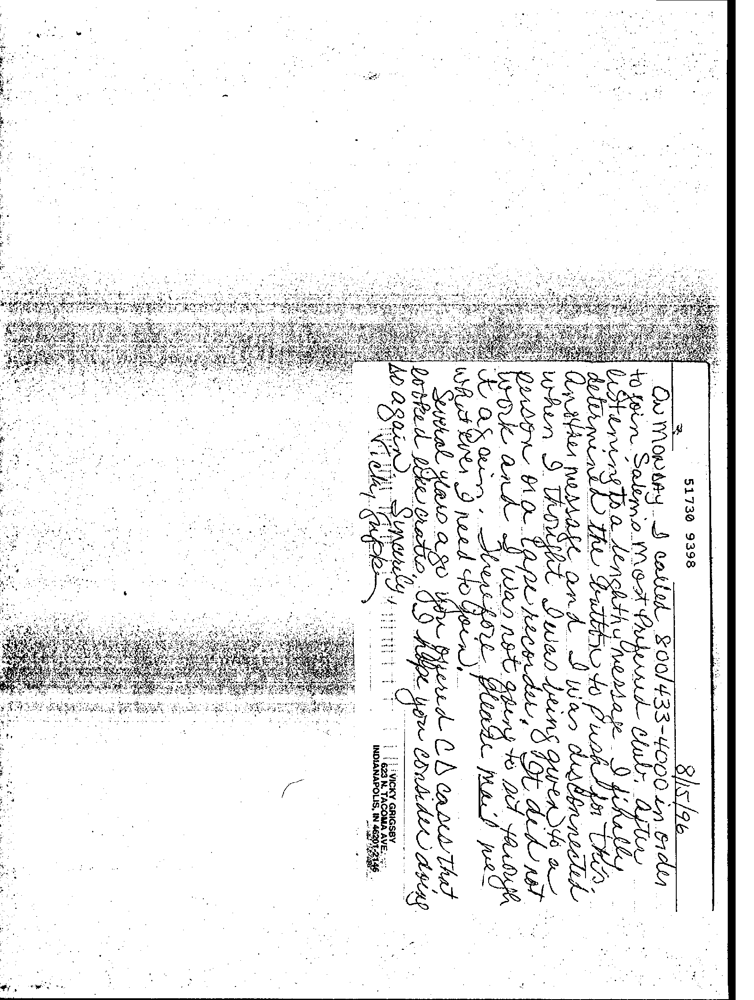 51730 9398
8/15/96
On Monday I called 800/433-4000 in order
to join Salem's Most Preferred club. After
listening to a lenghthy message I finally
determined the button to push for this.
Another message and I was disconnected
when I thought I was being given to a
person or a tape recorder. It did not
work and I was not going to sit through
it again. Therefore please mail me
whatever I need to join.
Several years ago you offered CD cases that
looked like crates. I hope you consider doing
so again.
Sincerely,
Vicky
VICKY GRIGSBY
623 N. TACOMA AVE.
INDIANAPOLIS, IN 46201-2146